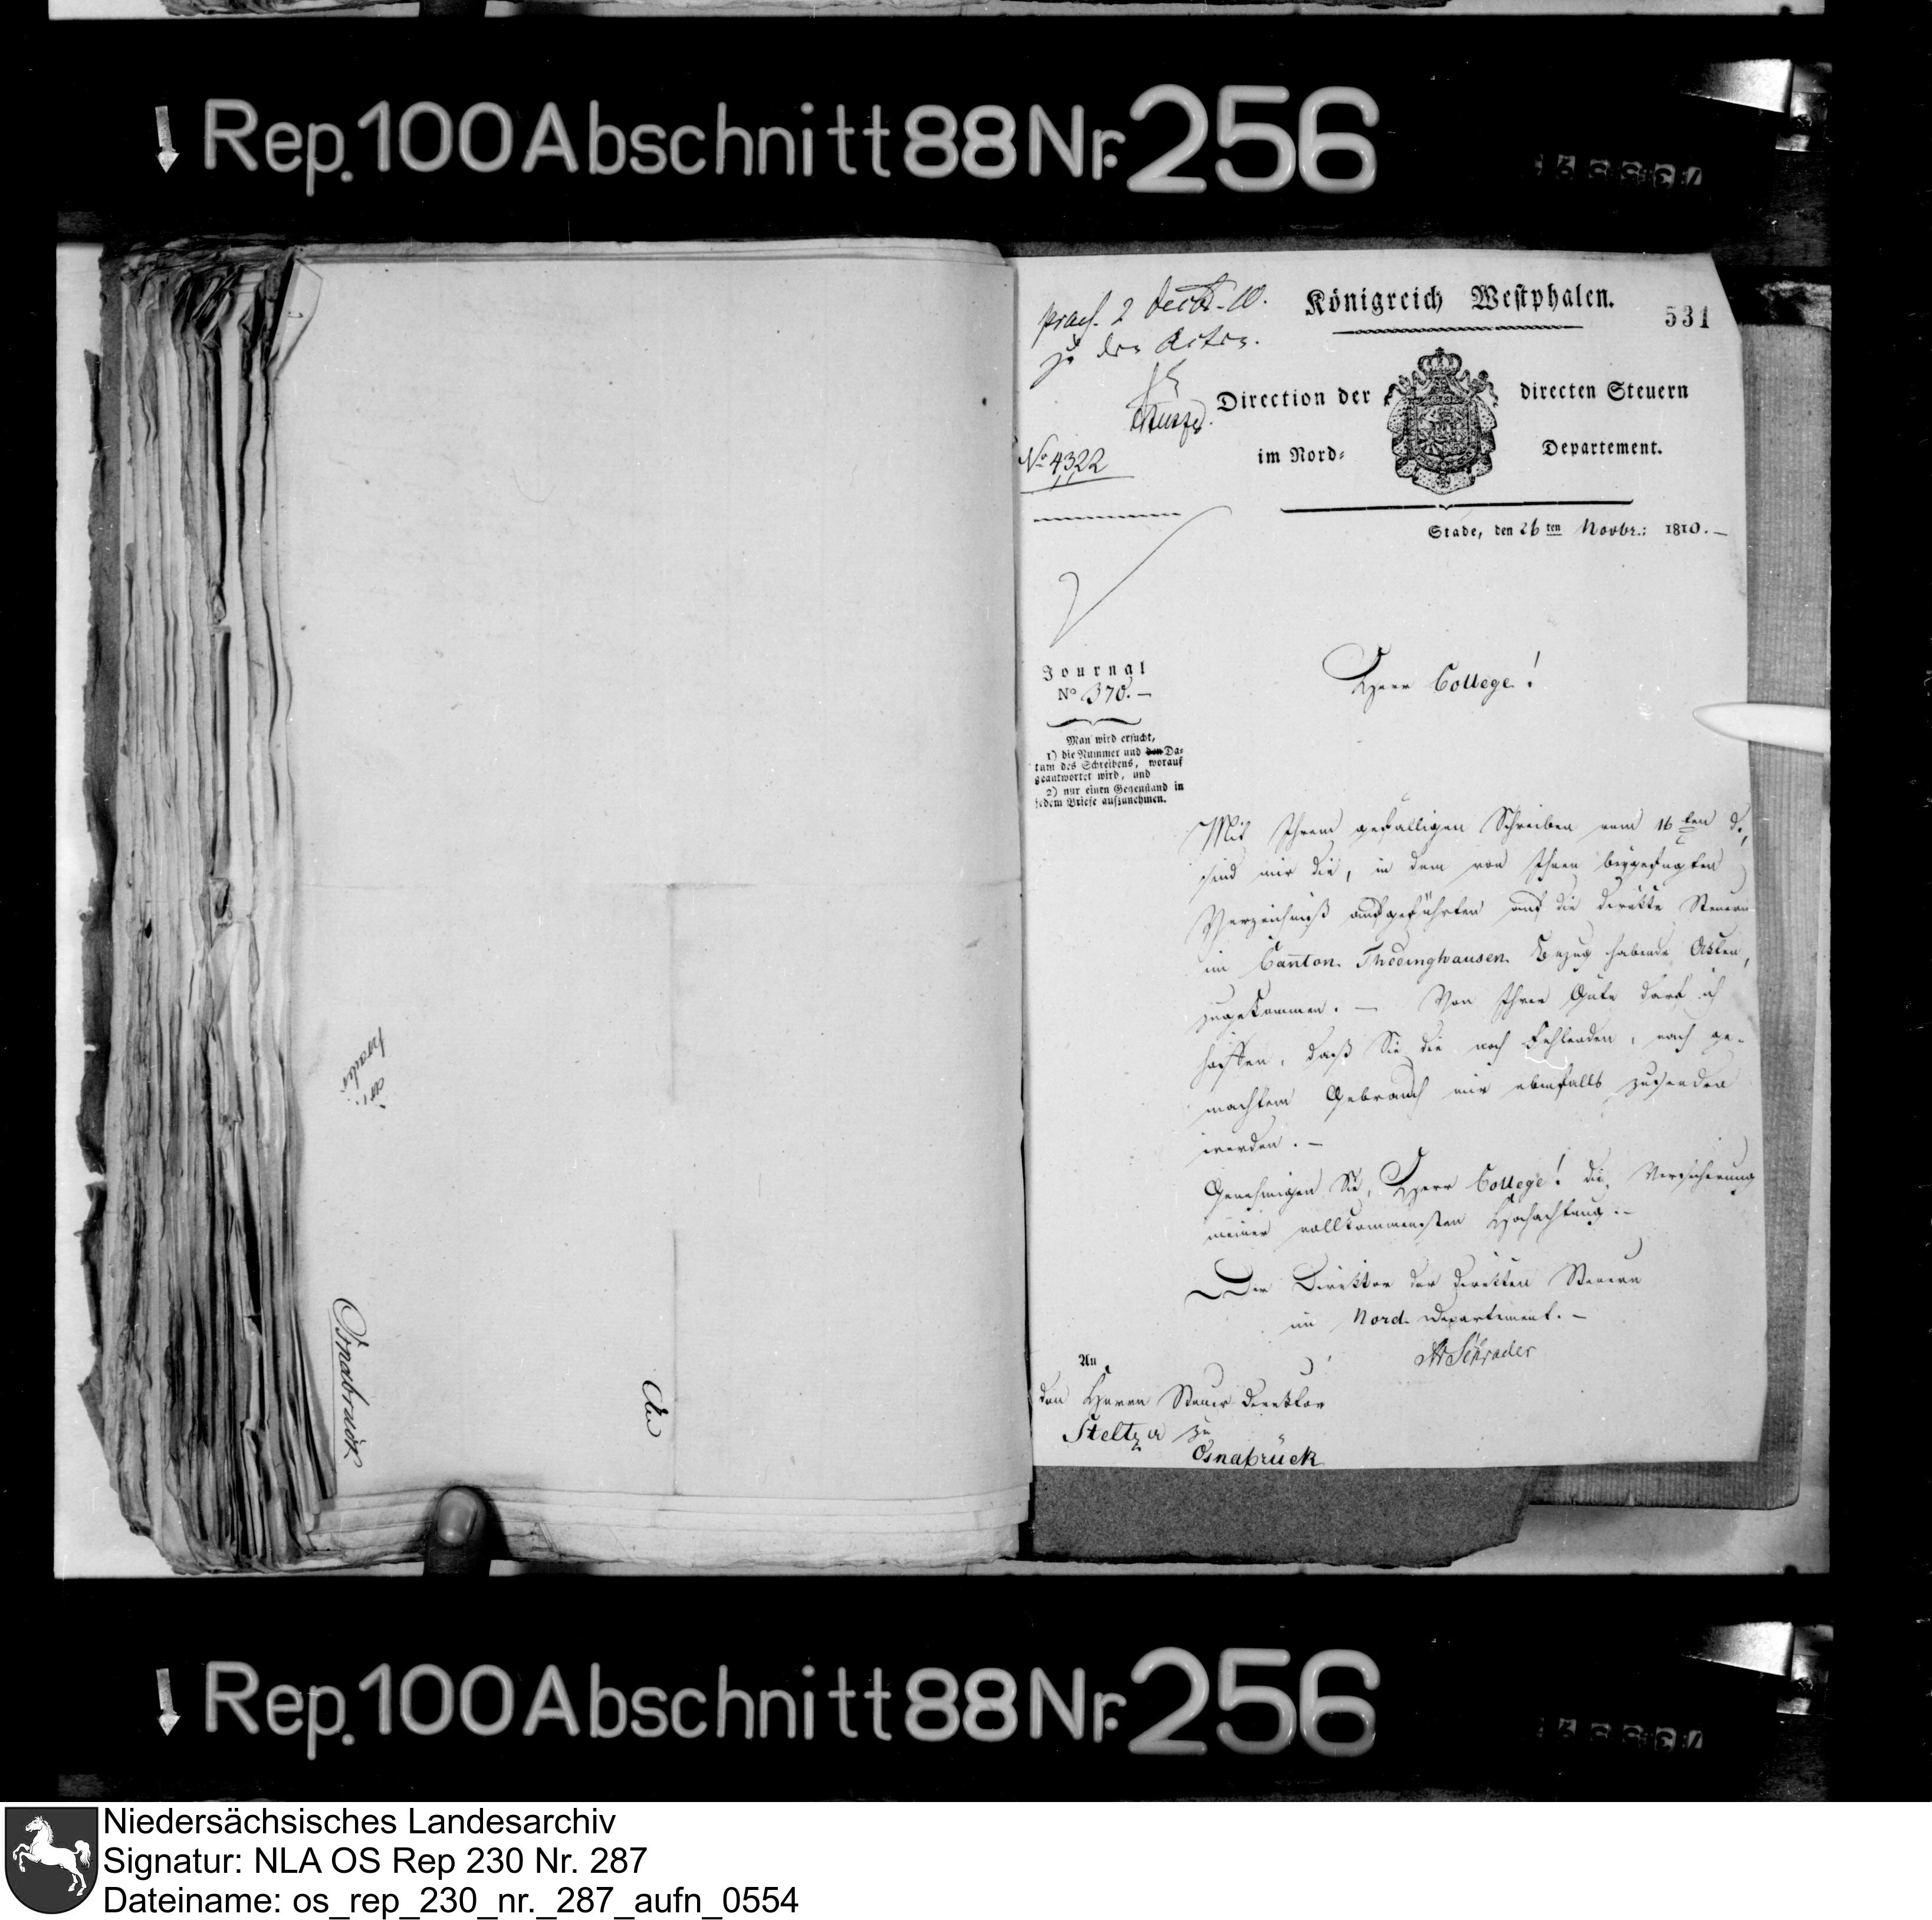 Rep. 100 Abschnitt 88 Nr. 256
praes. 2 Decbr. 10.
zu den Acten.
No 4322
Königreich Westphalen.
531
Direction der directen Steuern
im Nord- Departement.
Stade, den 26 ten Novbr.: 1810. —
Journal
No 370. —
Man wird ersucht,
1) die Nummer und den Da-
tum des Schreibens, worauf
geantwortet wird, und
2) nur einen Gegenstand in
jedem Briefe aufzunehmen.
Herr College!
Mit Ihrem gefälligen Schreiben vom 16 ten d.,
sind mir die, in dem von Ihnen beygefügten
Verzeichniß aufgeführten auf die direkte Steuern
im Canton Thedinghausen Bezug habende Akten,
zugekommen. — Von Ihrer Güte darf ich
hoffen, daß Sie die noch fehlenden, nach ge-
machtem Gebrauch mir ebenfalls zusenden
werden. —
Genehmigen Sie, Herr College! die Versicherung
meiner vollkommensten Hochachtung. —
Der Direktor der direkten Steuern
im Nord Departement. —
Schrader
An
den Herrn Steuer Direktor
Steltzer zu
Osnabrück
Osnabrück
Rep. 100 Abschnitt 88 Nr. 256
Niedersächsisches Landesarchiv
Signatur: NLA OS Rep 230 Nr. 287
Dateiname: os_rep_230_nr._287_aufn_0554